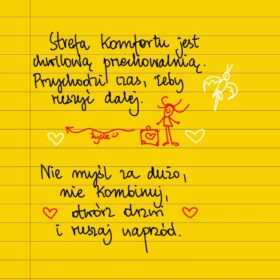 Strefa komfortu jest
chwilową przechowalnią.
Przychodzi czas, żeby
ruszyć dalej.
życie
Nie myśl za dużo,
nie kombinuj,
otwórz drzwi
i ruszaj naprzód.